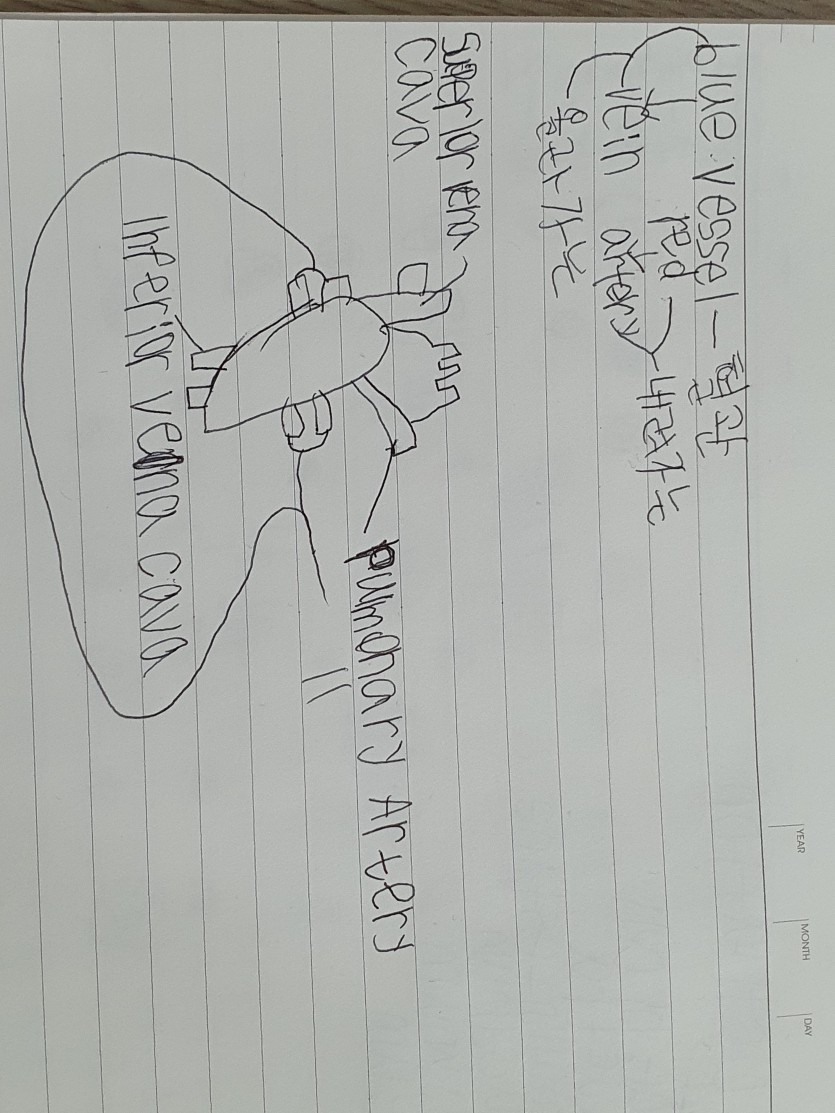 YEAR MONTH DAY
blue vessel – 혈관
red
vein artery
내려가는
올라가는
Superior
cava
pulmonary Artery
Inferior vena cava